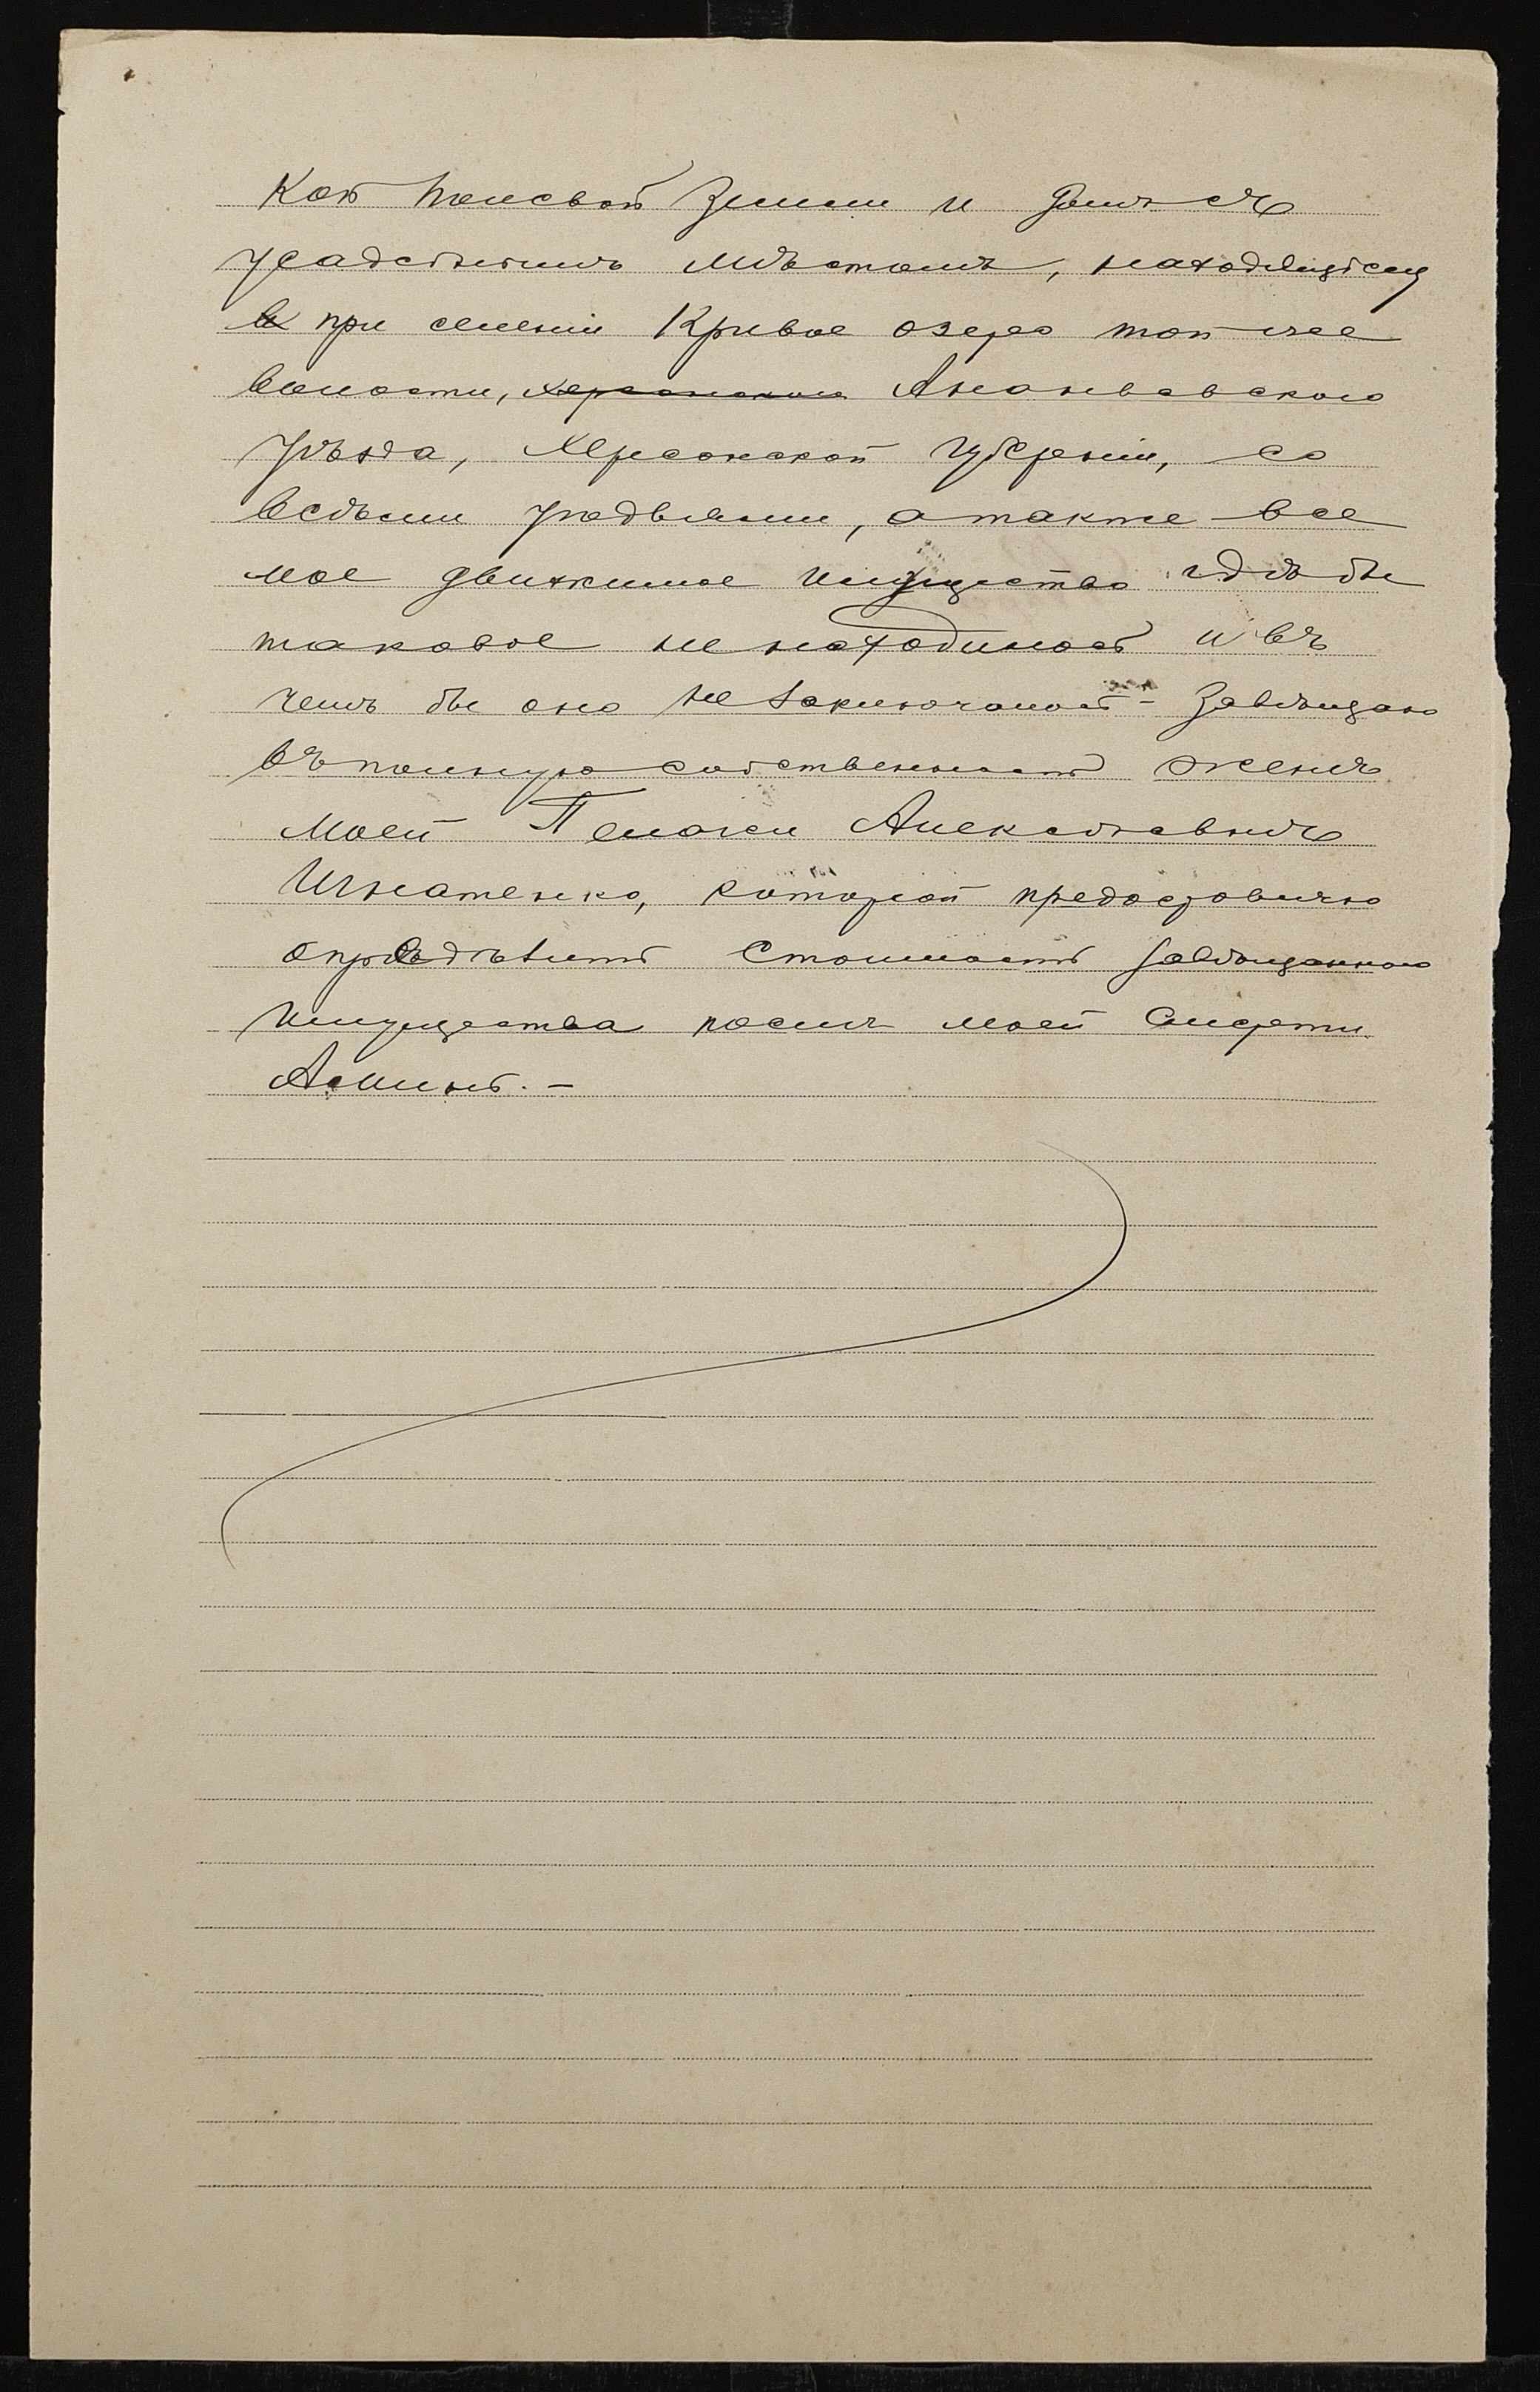 кой полевой земли и домъ съ
усадебнымъ мѣстомъ, находящіеся
при селеніи Кривое озеро той-же
волости, Херсонской Ананьевскаго
уѣзда, Херсонской губерніи, со
всѣми угодьями, а также все
мое движимое имущество гдѣ бы
таковое не находилось и въ
чемъ бы оно не заключалось - завѣщаю
въ полную собственность женѣ
моей Пелагеи Алексѣевнѣ
Игнатенко, которой предоставляю
опредѣлить стоимость завѣщаннаго
имущества послѣ моей смерти.
Аминь. -